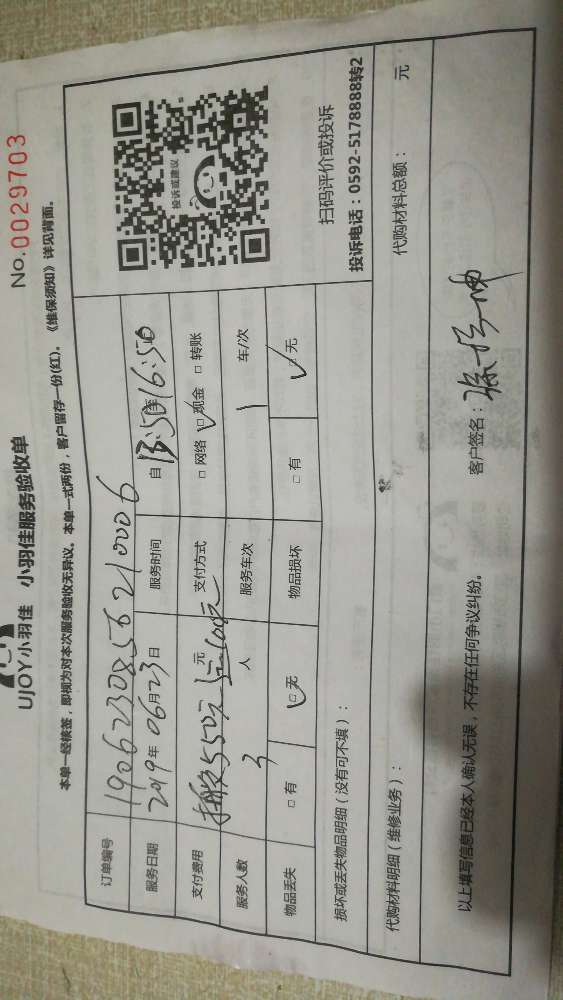 No.0029703
UJOY小羽佳 小羽佳服务验收单
本单一经核签，即视为对本次服务验收无异议。本单一式两份，客户留存一份(红)。《维保须知》详见背面。
订单编号 1906230856210006
服务日期 2019年06月23日 服务时间 自13:50至16:50
支付费用 550元 元 支付方式 □网络 □现金 □转账
服务人数 3 人 服务车次 1 车/次
物品丢失 □有 □无 物品损坏 □有 □无
投诉或建议
扫码评价或投诉
投诉电话：0592-5178888转2
损坏或丢失物品明细（没有可不填）：
代购材料明细（维修业务）： 代购材料总额： 元
以上填写信息已经本人确认无误，不存在任何争议纠纷。 客户签名：